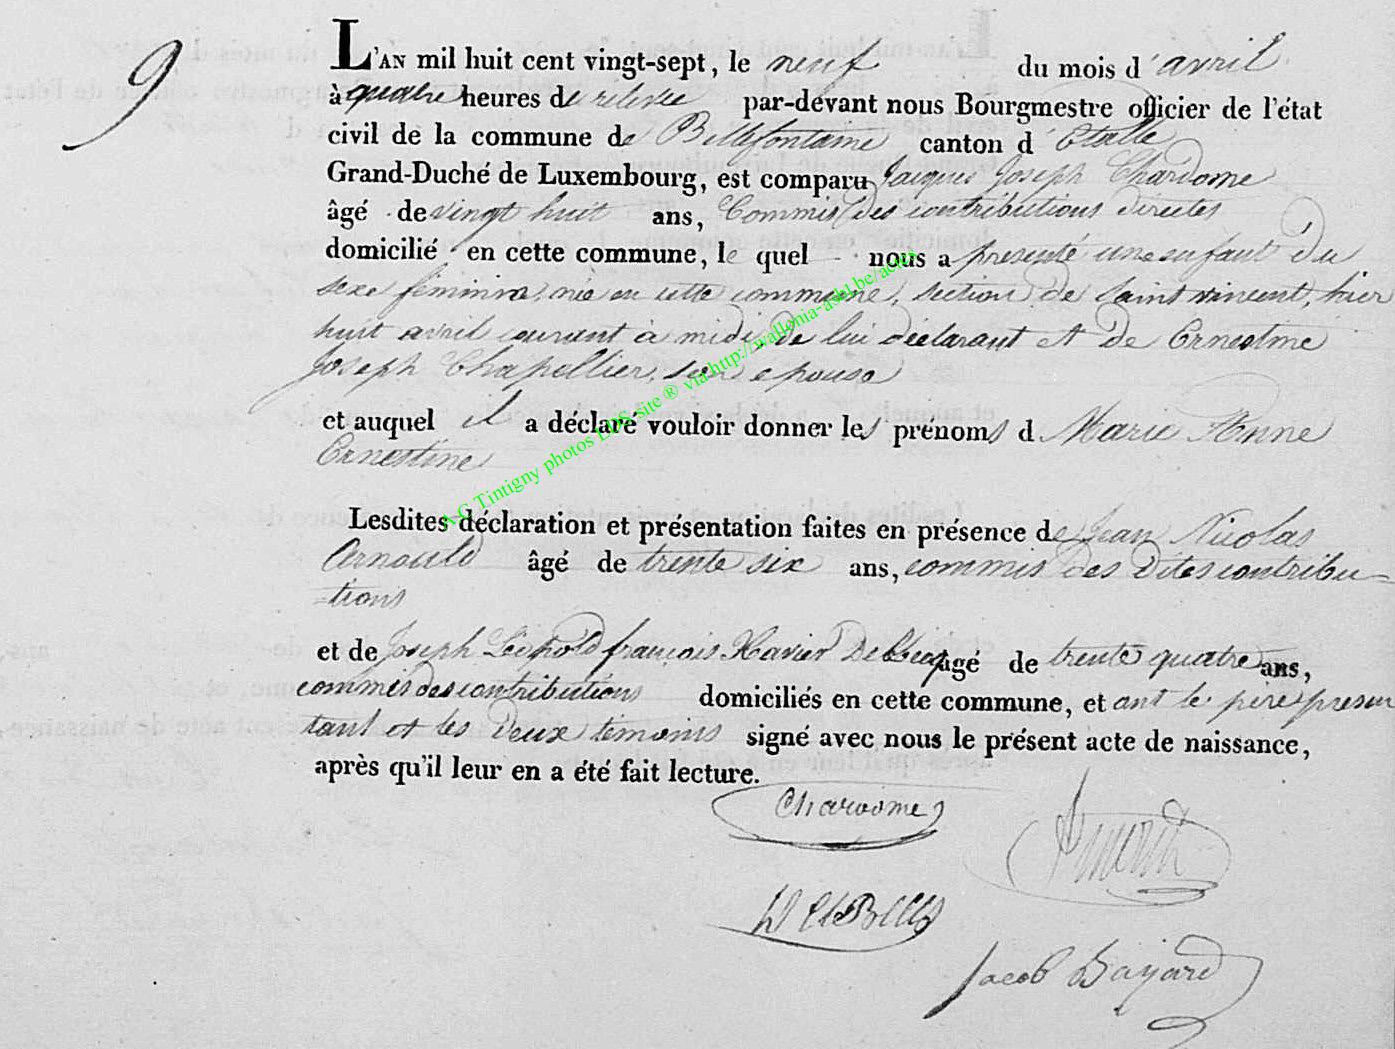 9
L'AN mil huit cent vingt-sept, le neuf du mois d'avril
à quatre heures de relevée par-devant nous Bourgmestre officier de l'état
civil de la commune de Bellefontaine canton d'Etalle
Grand-Duché de Luxembourg, est comparu Jacques Joseph Chardome
âgé de vingt huit ans, Commis des contributions directes
domicilié en cette commune, le quel nous a presenté une enfant du
sexe féminin, née en cette commune, section de Saint vincent, hier
huit avril courant à midi, de lui déclarant et de Ernestine
Joseph Chapellier, son epouse
et auquel il a déclaré vouloir donner les prénoms d Marie Anne
Ernestine
Lesdites déclaration et présentation faites en présence de Jean Nicolas
Arnould âgé de trente six ans, commis des dites contribu-
-tions
et de Joseph Léopold françois Xavier âgé de trente quatre ans,
commis des contributions domiciliés en cette commune, et ont le père presen
tant et les deux témoins signé avec nous le présent acte de naissance,
après qu'il leur en a été fait lecture.
Chardome
Jacob Bayard
A-G Tintigny photos site ® via http://wallonia-asbl.be/actes